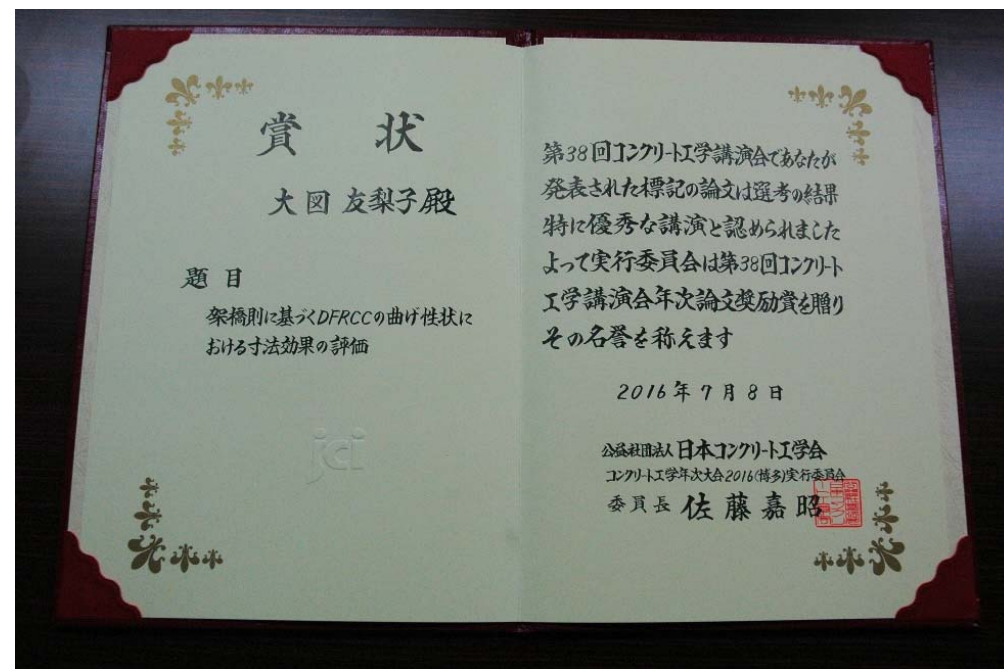 賞 状
大図 友梨子殿
題目
架橋則に基づくDFRCCの曲げ性状に
おける寸法効果の評価
jci
第38回コンクリート工学講演会であなたが
発表された標記の論文は選考の結果
特に優秀な講演と認められました
よって実行委員会は第38回コンクリート
工学講演会年次論文奨励賞を贈り
その名誉を称えます
2016年7月8日
公益社団法人 日本コンクリート工学会
コンクリート工学年次大会2016(博多)実行委員会
委員長 佐藤嘉昭